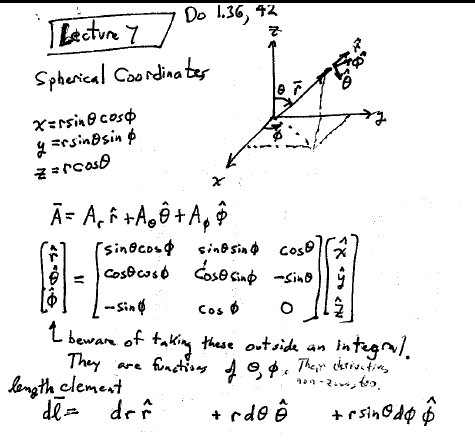 Lecture 7 Do 1.36, 42
Spherical Coordinates
x=rsinθcosϕ
y=rsinθsinϕ
z=rcosθ
z
θ r̄ r̂ ϕ̂ θ̂
ϕ y
x
Ā = A_r r̂ + A_θ θ̂ + A_ϕ ϕ̂
[r̂] [sinθcosϕ sinθsinϕ cosθ] [x̂]
[θ̂] = [cosθcosϕ cosθsinϕ -sinθ] [ŷ]
[ϕ̂] [-sinϕ cosϕ 0] [ẑ]
beware of taking these outside an integral.
They are functions of θ, ϕ. Their derivatives
non-zero, too.
length element
dl̄ = dr r̂ + rdθ θ̂ + rsinθdϕ ϕ̂